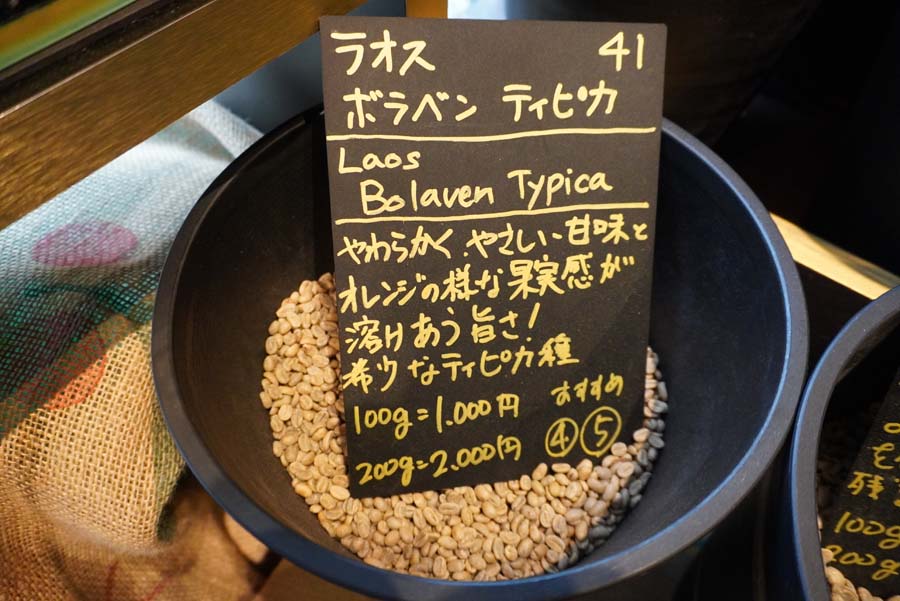 ラオス 41
ボラベン ティピカ
Laos
Bolaven Typica
やわらかく、やさしい甘味と
オレンジの様な果実感が
溶けあう旨さ!
希少なティピカ種
100g=1.000円 おすすめ
200g=2.000円 ④⑤
残
100g
200g